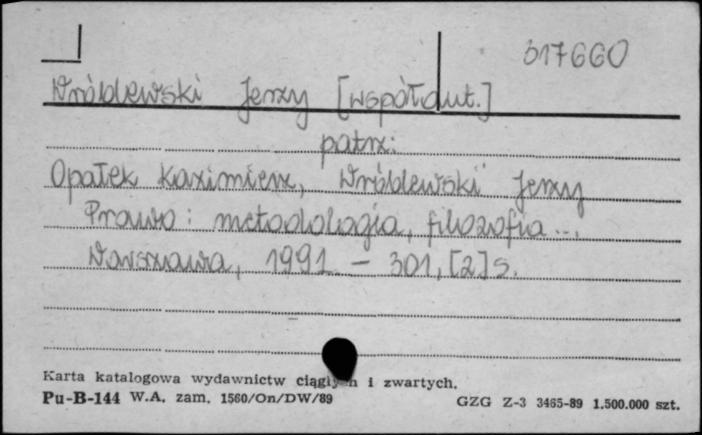 317660
Wróblewski Jerzy [współaut.]
patrz:
Opałek Kazimierz, Wróblewski Jerzy
Prawo: metodologia, filozofia...
Warszawa, 1991. - 301, [2] s.
Karta katalogowa wydawnictw ciągłych i zwartych.
Pu-B-144 W.A. zam. 1560/On/DW/89 GZG Z-3 3465-89 1.500.000 szt.